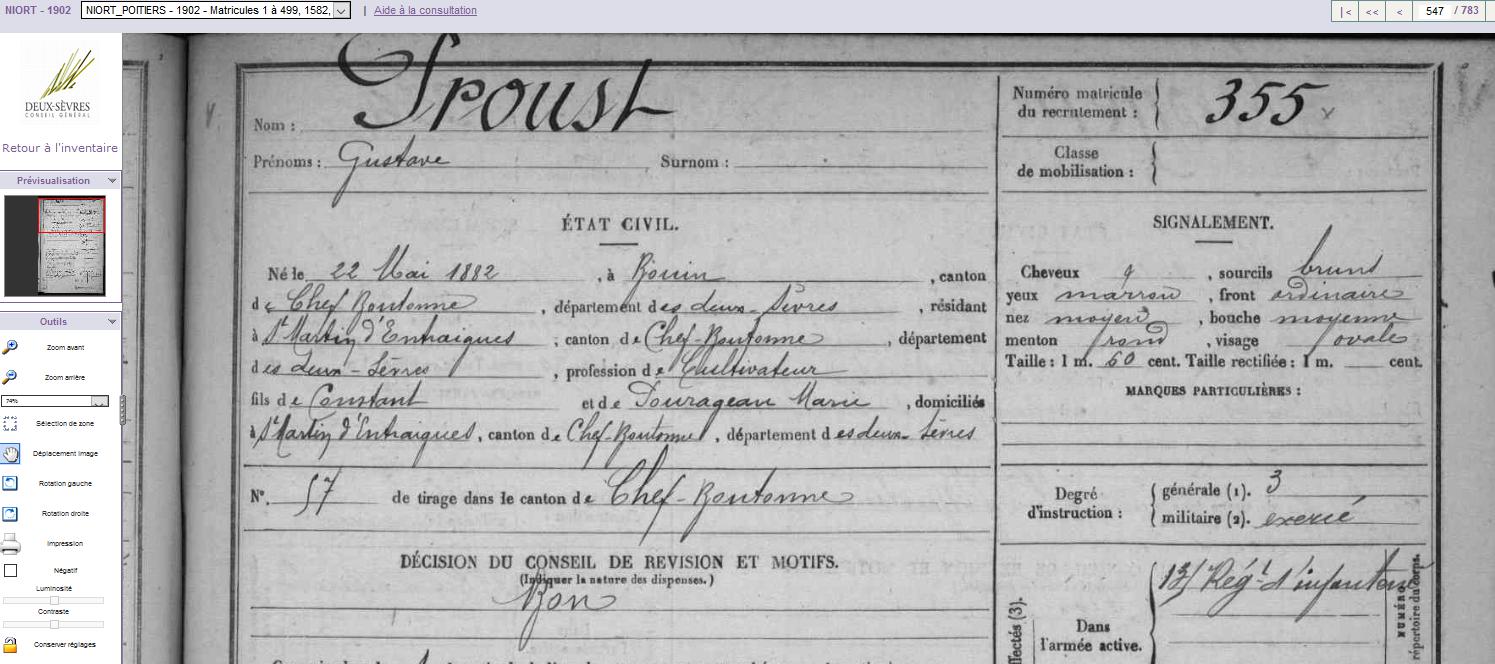 NIORT - 1902 NIORT_POITIERS - 1902 - Matricules 1 à 499, 1582, | Aide à la consultation |< << < 547 / 783
DEUX-SÈVRES
CONSEIL GÉNÉRAL
Retour à l'inventaire
Prévisualisation
Outils
Zoom avant
Zoom arrière
74%
Sélection de zone
Déplacement image
Rotation gauche
Rotation droite
Impression
Négatif
Luminosité
Contraste
Conserver réglages
Nom : Proust
Prénoms : Gustave Surnom :
ÉTAT CIVIL.
Né le 22 Mai 1882, à Bouin, canton
de Chef Boutonne, département des deux-Sèvres, résidant
à St Martin d'Entraigues, canton de Chef-Boutonne, département
des deux-Sèvres, profession de Cultivateur
fils de Constant et de Marie, domiciliés
à St Martin d'Entraigues, canton de Chef-Boutonne, département des deux-Sèvres
N°. 57 de tirage dans le canton de Chef-Boutonne
DÉCISION DU CONSEIL DE REVISION ET MOTIFS.
(Indiquer la nature des dispenses.)
Bon
Numéro matricule
du recrutement : 355
Classe
de mobilisation :
SIGNALEMENT.
Cheveux, sourcils bruns
yeux marron, front ordinaire
nez moyen, bouche moyenne
menton rond, visage ovale
Taille : 1 m. 60 cent. Taille rectifiée : 1 m. cent.
MARQUES PARTICULIÈRES :
Degré
d'instruction :
générale (1). 3
militaire (2). exercé
Régt d'infanterie
Dans
l'armée active.
NUMÉRO
répertoire du corps.